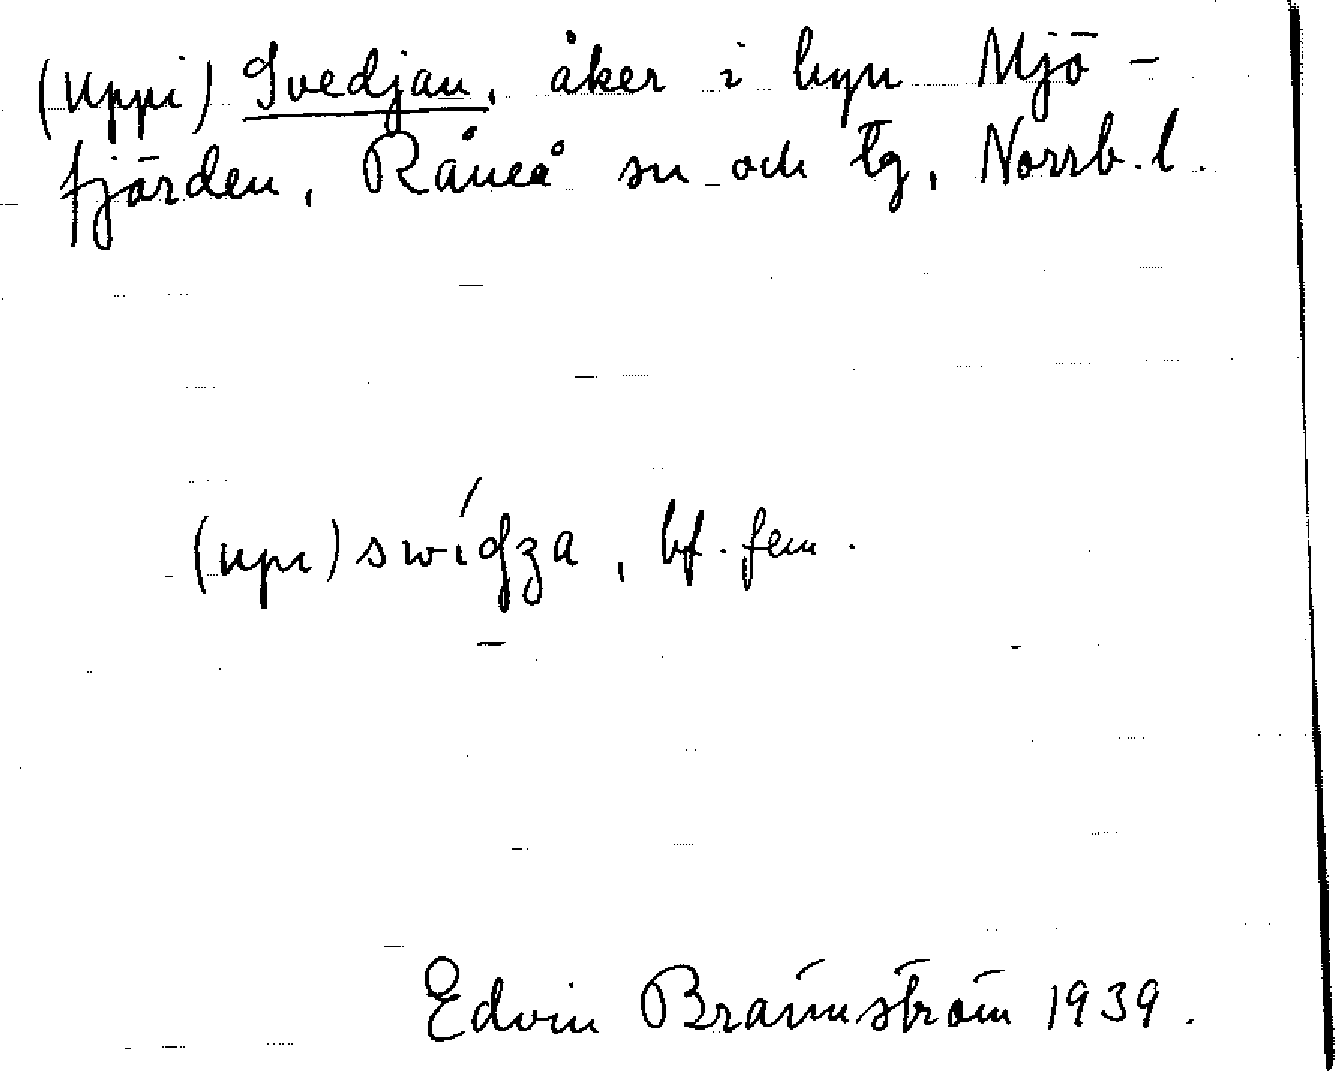 (Uppi) Svedjan, åker i byn Mjö-
fjärden, Råneå sn och tg, Norrb. l.
(upi) swíʤza, bf. fem.
Edvin Brännström 1939.